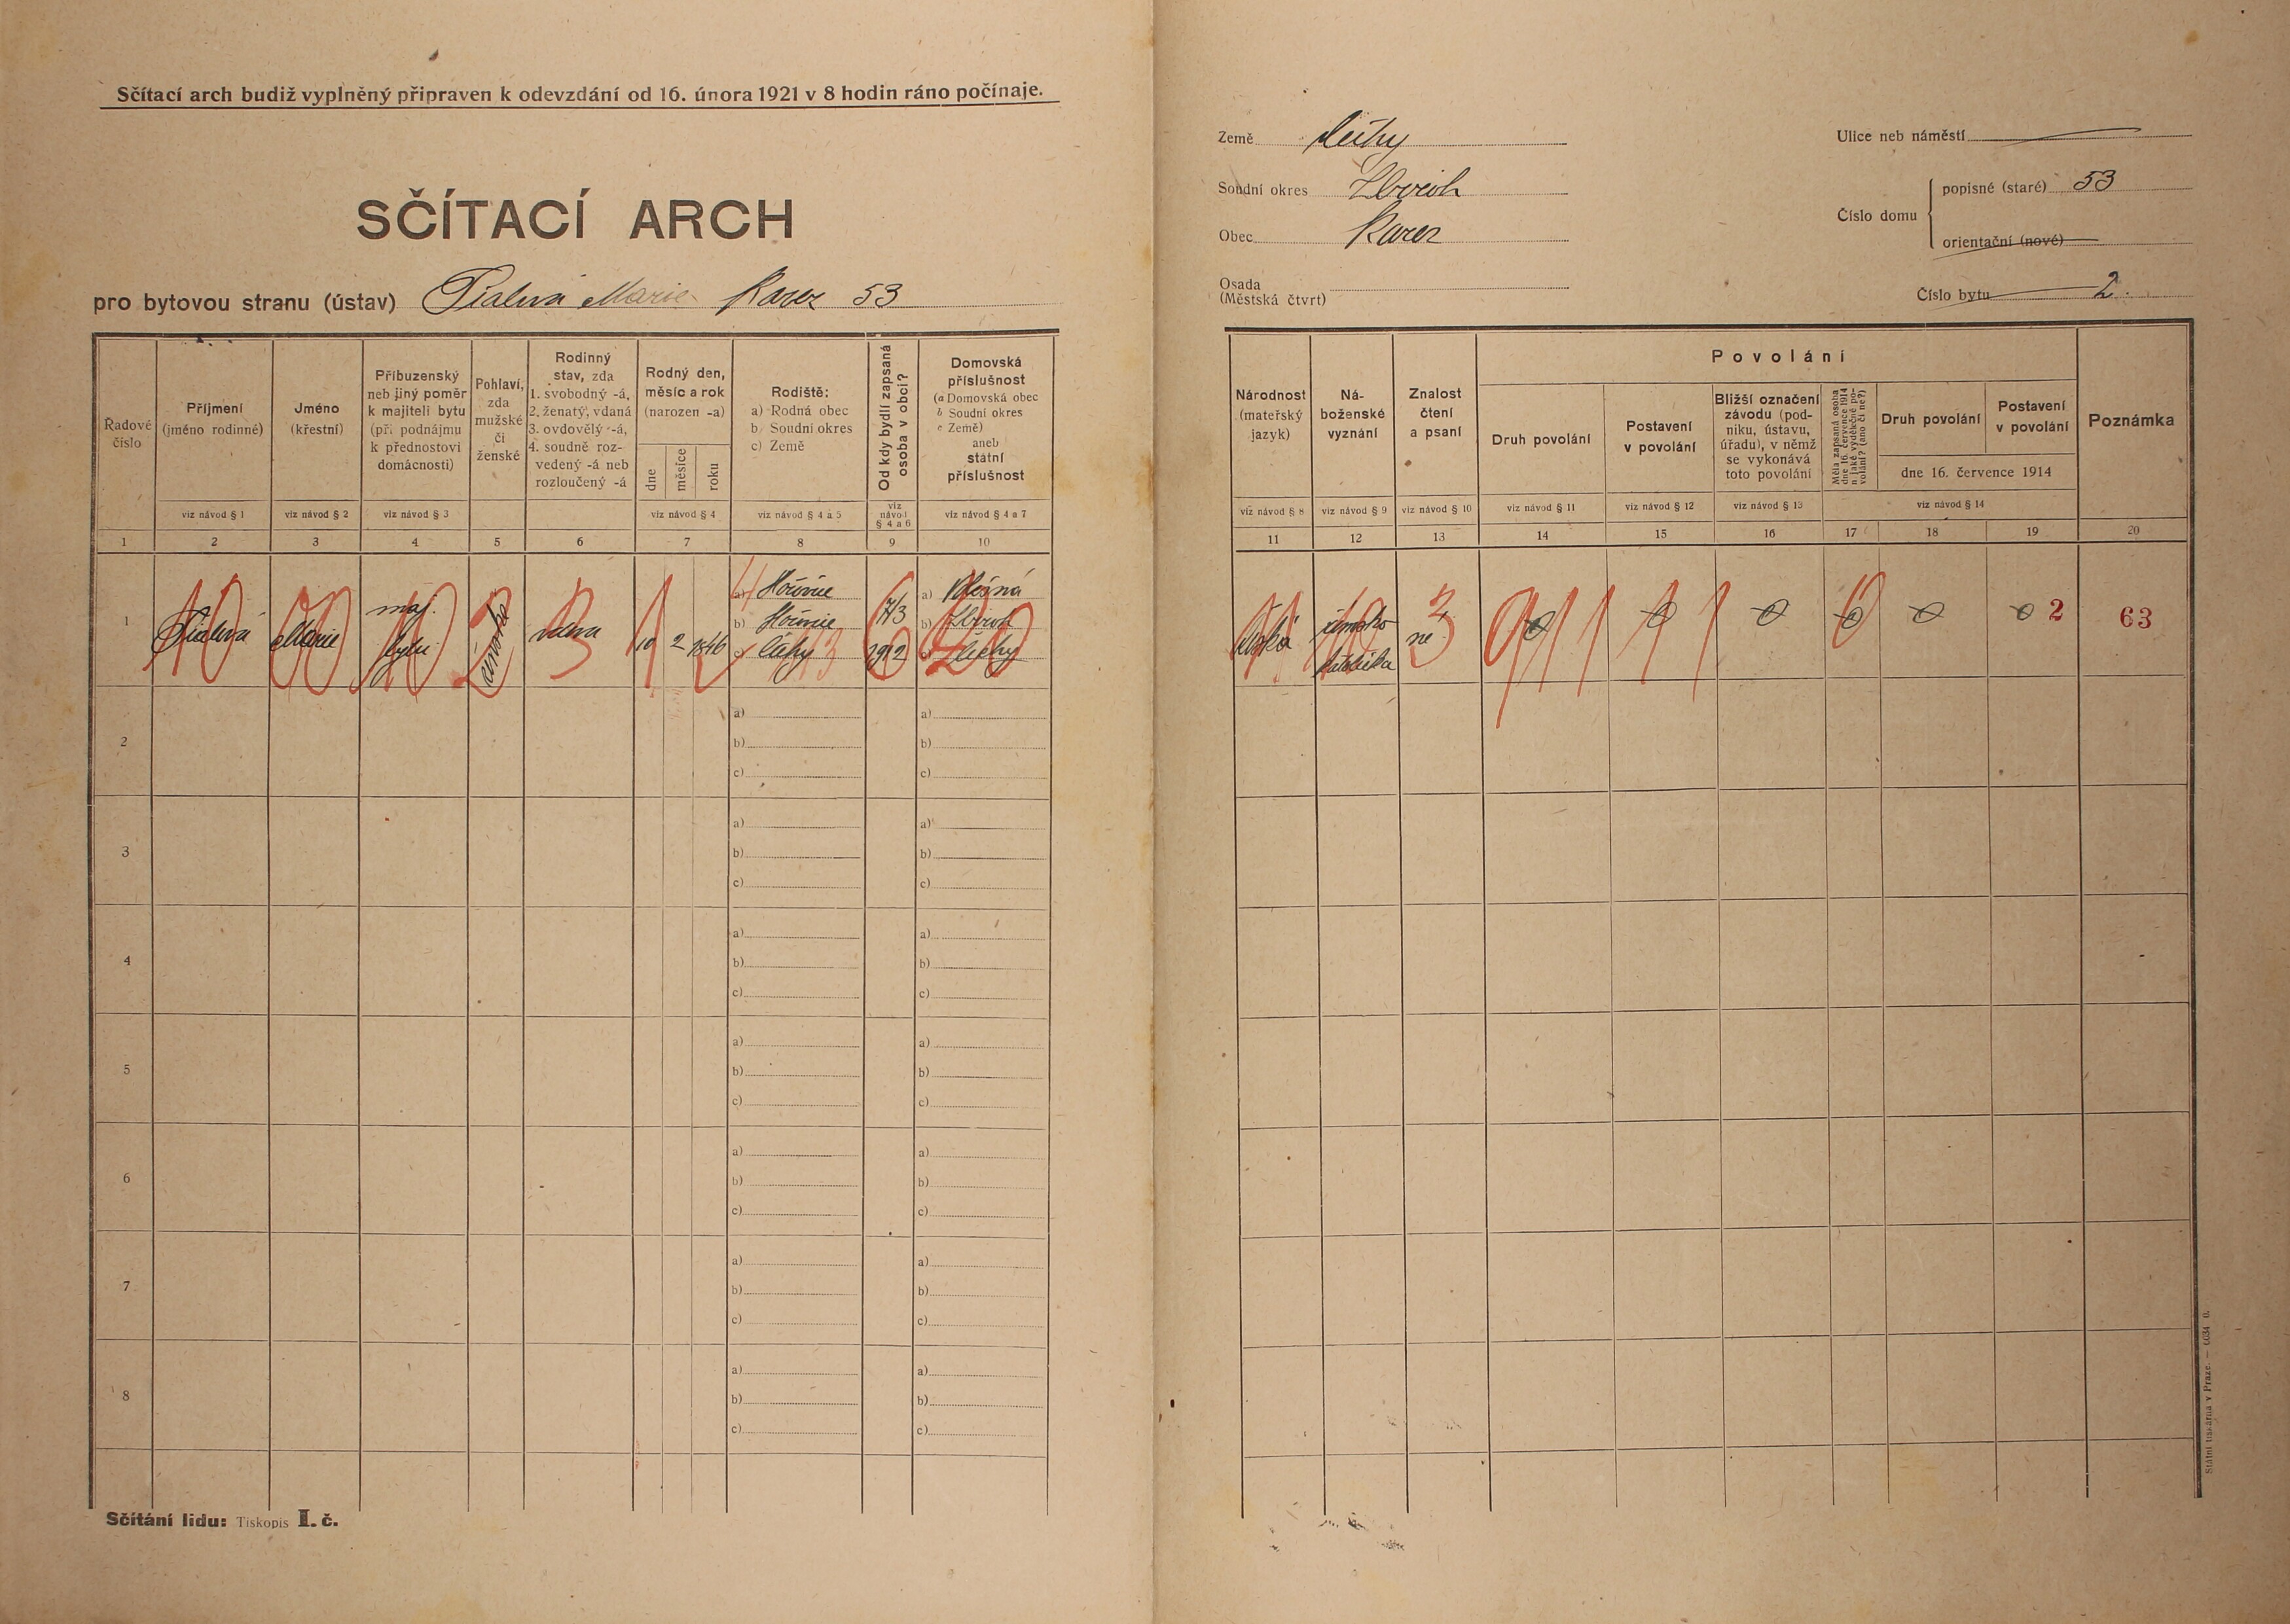 Sčítací arch budiž vyplněný připraven k odevzdání od 16. února 1921 v 8 hodin ráno počínaje.
SČÍTACÍ ARCH
pro bytovou stranu (ústav) Marie Karez 53
Země Čechy
Soudní okres Zbiroh
Obec Karez
Osada
(Městská čtvrt)
Ulice neb náměstí
Číslo domu
popisné (staré) 53
orientační (nové)
Číslo bytu 2.
Řadové číslo
Příjmení (jméno rodinné)
Jméno (křestní)
Příbuzenský neb jiný poměr k majiteli bytu (při podnájmu k přednostovi domácnosti)
Pohlaví, zda mužské či ženské
Rodinný stav, zda 1. svobodný -á, 2. ženatý, vdaná 3. ovdovělý -á, 4. soudně rozvedený -á neb rozloučený -á
Rodný den, měsíc a rok (narozen -a)
dne
měsíce
roku
Rodiště:
a) Rodná obec
b) Soudní okres
c) Země
Od kdy bydlí zapsaná osoba v obci?
Domovská příslušnost
(a Domovská obec
b Soudní okres
c Země)
aneb
státní
příslušnost
viz návod § 1
viz návod § 2
viz návod § 3
viz návod § 4
viz návod § 4 a 5
viz návod § 4 a 6
viz návod § 4 a 7
1 2 3 4 5 6 7 8 9 10
Národnost (mateřský jazyk)
Náboženské vyznání
Znalost čtení a psaní
Povolání
Druh povolání
Postavení v povolání
Bližší označení závodu (podniku, ústavu, úřadu), v němž se vykonává toto povolání
Měla zapsaná osoba dne 16. července 1914 nějaké výdělečné povolání? (ano či ne?)
Druh povolání
Postavení v povolání
dne 16. července 1914
Poznámka
viz návod § 8
viz návod § 9
viz návod § 10
viz návod § 11
viz návod § 12
viz návod § 13
viz návod § 14
11 12 13 14 15 16 17 18 19 20
1
Marie
maj.
bytu
ženské
vdova
10 2 1846
a) Hořovice
b) Hořovice
c) Čechy
1912
a)
b) Zbiroh
c) Čechy
česká
římsko
katolická
ne
2
63
2
a)
b)
c)
a)
b)
c)
3
a)
b)
c)
a)
b)
c)
4
a)
b)
c)
a)
b)
c)
5
a)
b)
c)
a)
b)
c)
6
a)
b)
c)
a)
b)
c)
7
a)
b)
c)
a)
b)
c)
8
a)
b)
c)
a)
b)
c)
Sčítání lidu: Tiskopis I. č.
Státní tiskárna v Praze.